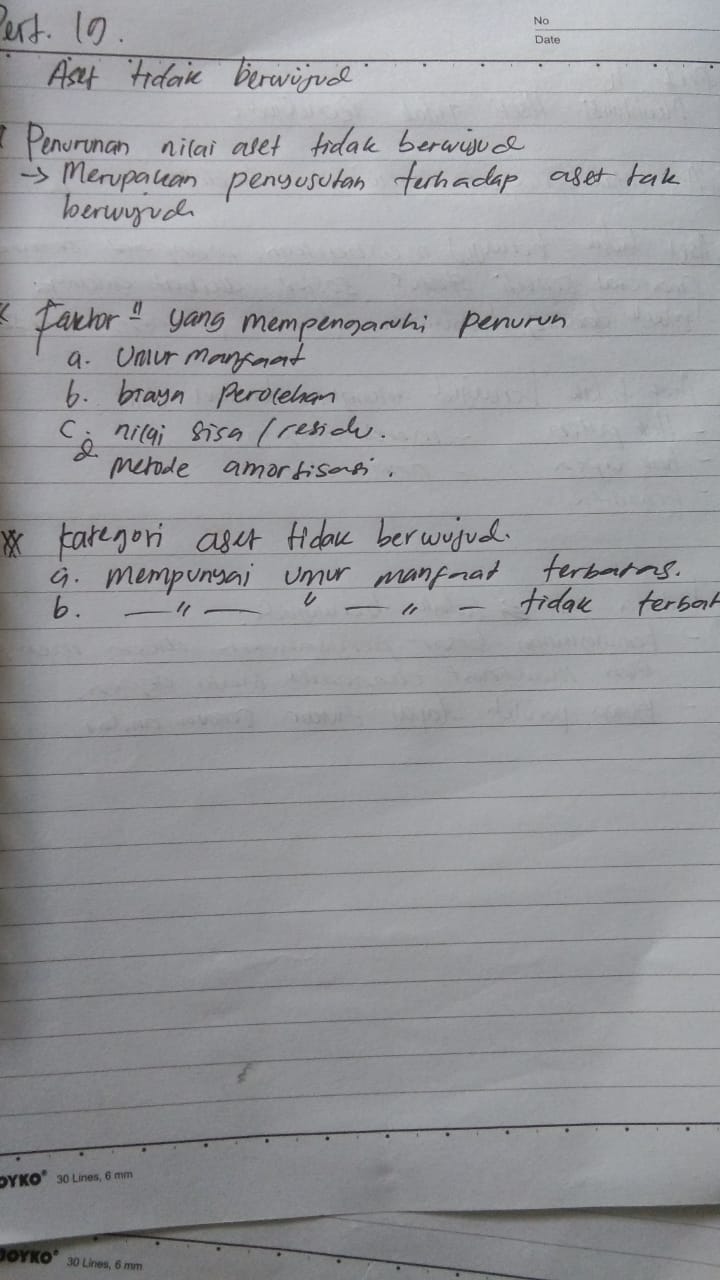 Pert. 10.
No
Date
Aset tidak berwujud
Penurunan nilai aset tidak berwujud
→ Merupakan penyusutan terhadap aset tak
berwujud
Faktor " yang mempengaruhi penurun
a. Umur manfaat
b. biaya perolehan
c. nilai sisa / residu.
d metode amortisasi.
Kategori aset tidak berwujud.
a. mempunyai umur manfaat terbatas.
b. — " — " — " — tidak terbat
JOYKO® 30 Lines, 6 mm
JOYKO® 30 Lines, 6 mm